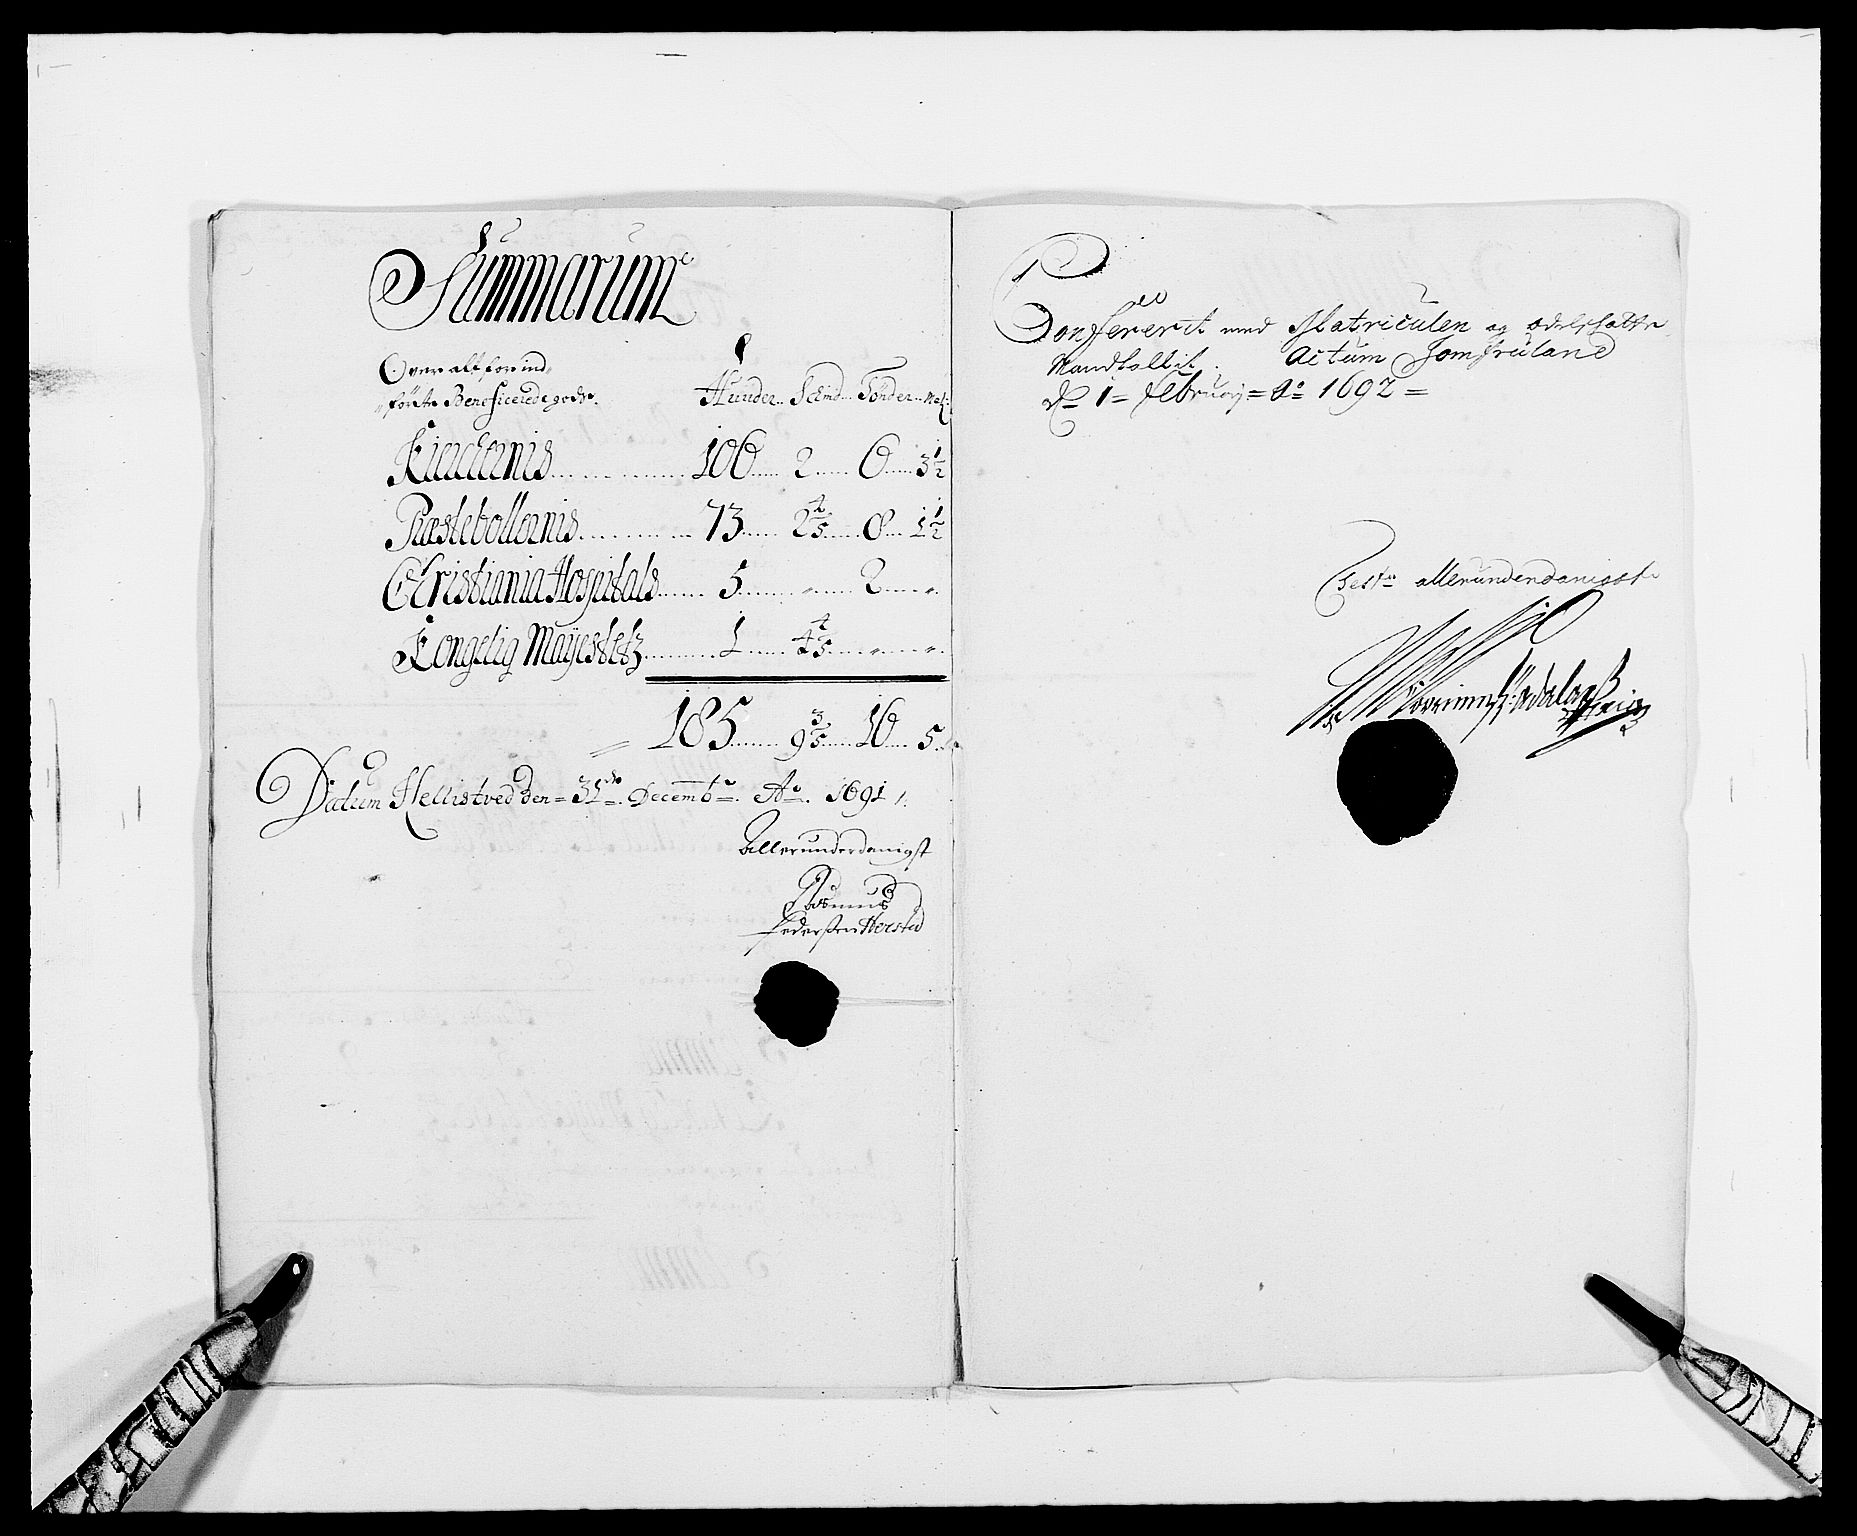 Summarum
Over alt for ind„
„förte Beneficerede godtz.
Huuder.. Schind... Tönder... Mel:
Kircternis ............ 106 ..... 2 ...... 6 ..... 3 1/2
Præstebollernis ......... 73 ...... 2 4/5 ..... 8 .... 1 1/2
Christiania Hospitals ...... 5 ........ „ ....... 2 ..... „ .
Kongelig Mayestetz .......... 1 ...... 4 4/5 ..... „ ..... „ .
185 ....... 9 3/5 ..... 16 .... 5 ..
Datum Hellistved den = 31 de = Decemb. Ao. 1691 /.
Allerunderdanigst
Rasmus
Pederßen Hersted
Confererit med Matriculen og
Mandtallit. Actum Jomfruland
d. 1 = February = Ao 1692 =
Teste allerunderdanigst